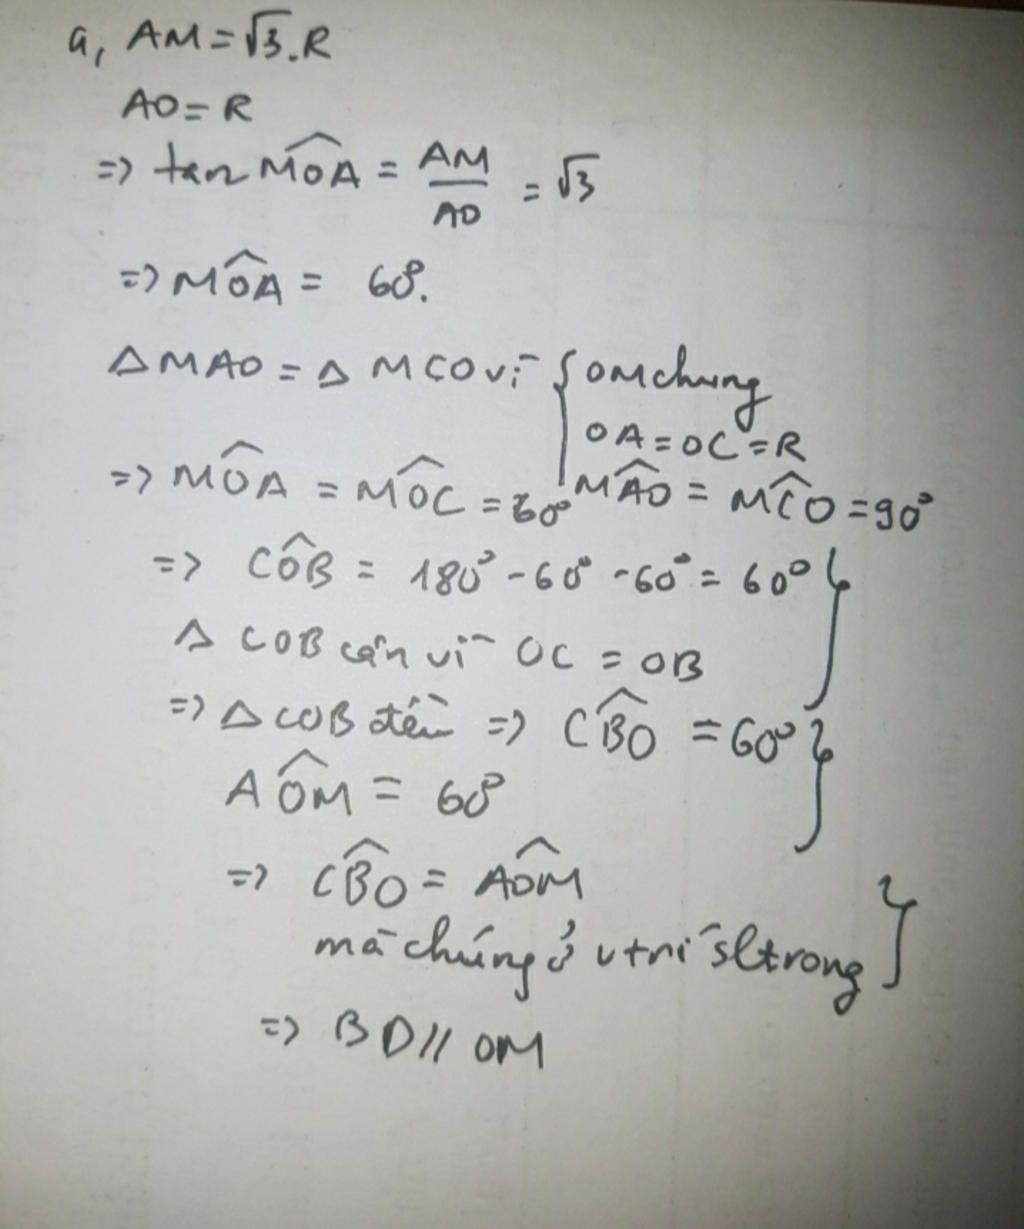 a, AM = √3.R
AO = R
=> tan MÔA = AM/AO = √3
=> MÔA = 60°.
△MAO = △MCO vì { OM chung
OA = OC = R
=> MÔA = MÔC = 60° MÂO = MĈO = 90°
=> CÔB = 180° - 60° - 60° = 60° }
△ COB cân vì OC = OB
=> △ COB đều => CB̂O = 60° }
AÔM = 60°
=> CB̂O = AÔM
mà chúng ở vtrí sltrong }
=> BD // OM